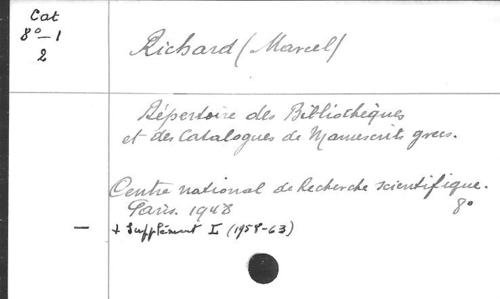 Cat
8°-1
2
Richard (Marcel)
Répertoire des Bibliothèques
et des Catalogues de Manuscrits grecs.
Centre national de Recherche scientifique.
Paris. 1948 8°
— + Supplément I (1958-63)